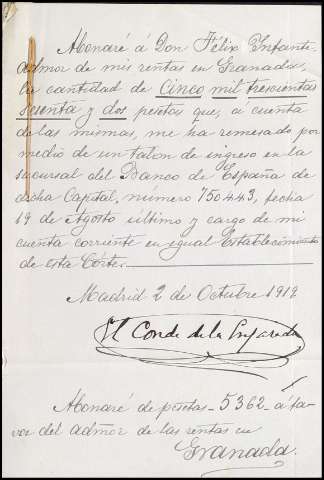 Abonaré á Don Félix Infante
Admor de mis rentas en Granada,
la cantidad de Cinco mil trescientas
sesenta y dos pesetas que, á cuenta
de las mismas, me ha remesado por
medio de un talon de ingreso en la
sucursal del Banco de España de
dicha Capital, número 750443, fecha
19 de Agosto último y cargo de mi
cuenta corriente en igual Establecimiento
de esta Córte.
Madrid 2 de Octubre 1919
El Conde de la
Abonaré de pesetas 5362 á fa-
vor del Admor de las rentas en
Granada.